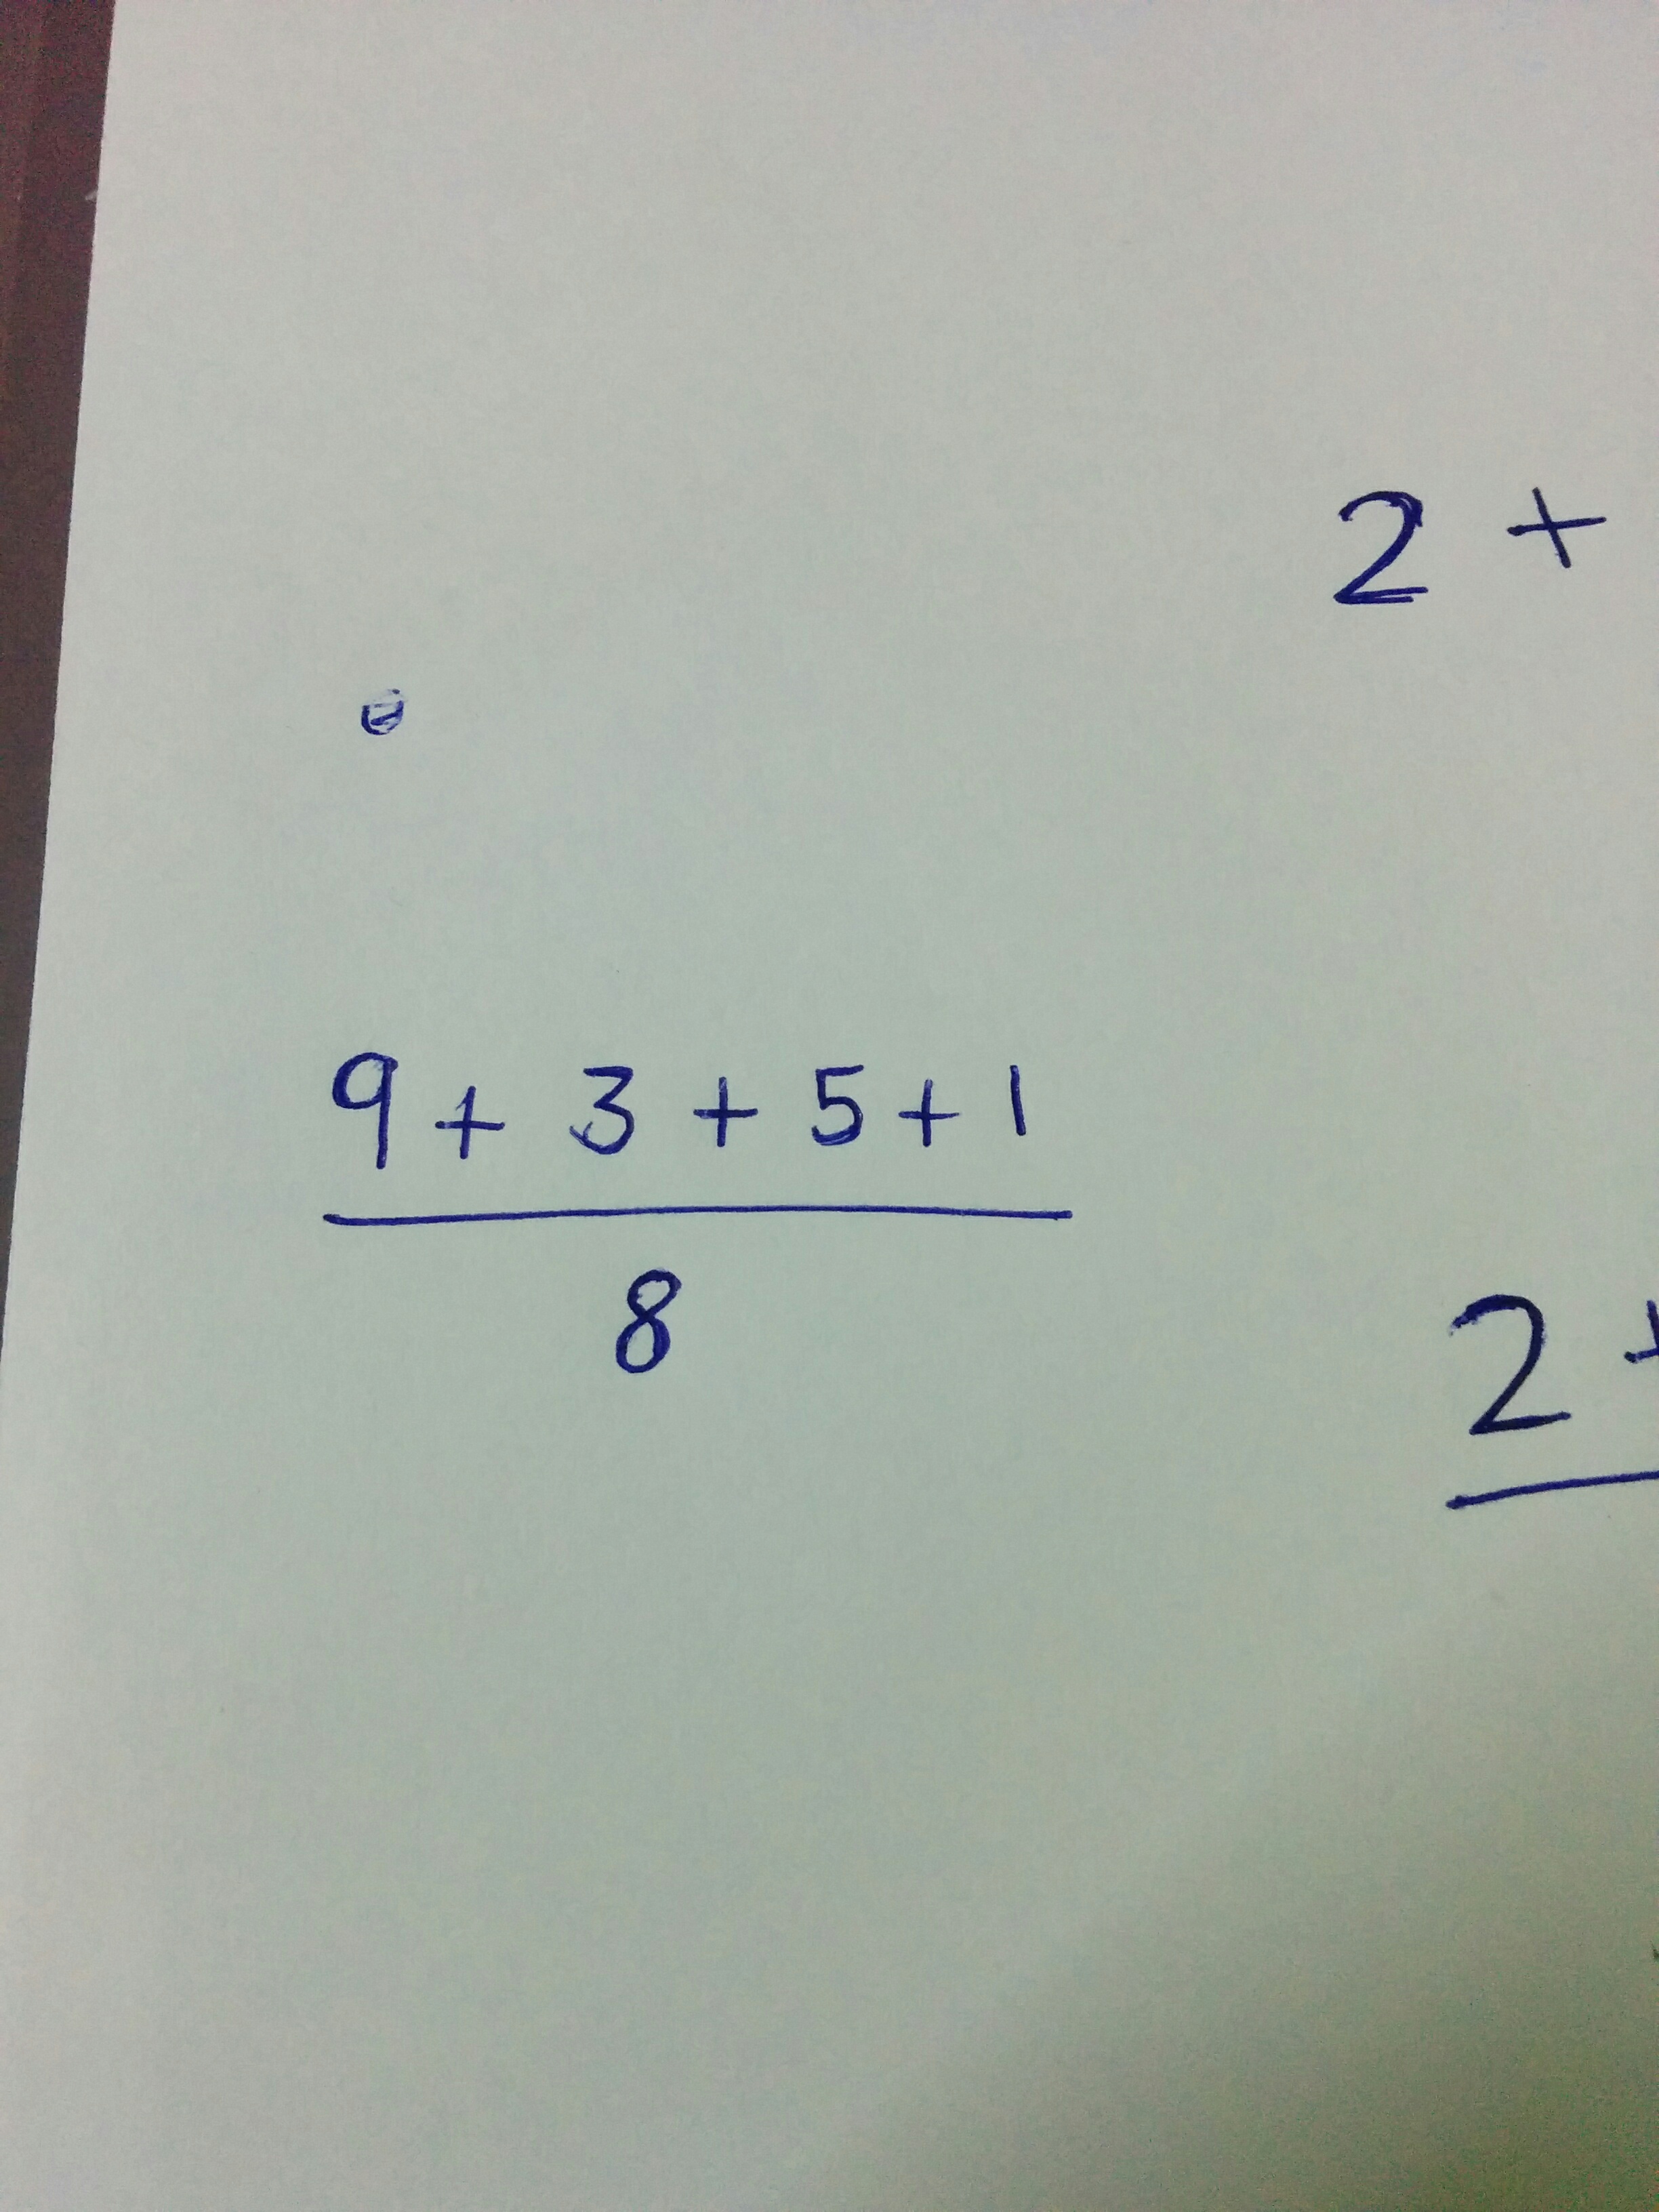 2 +
9 + 3 + 5 + 1
8
2 +